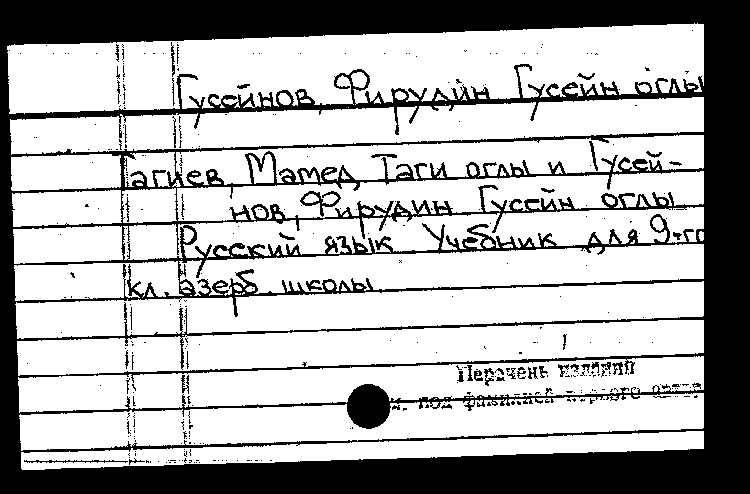 Гусейнов, Фирудин Гусейн оглы
Тагиев, Мамед Таги оглы и Гусей-
нов, Фирудин Гусейн оглы
Русский язык Учебник для 9-го
кл. азерб. школы
Перечень изданий
под фамилией первого автор